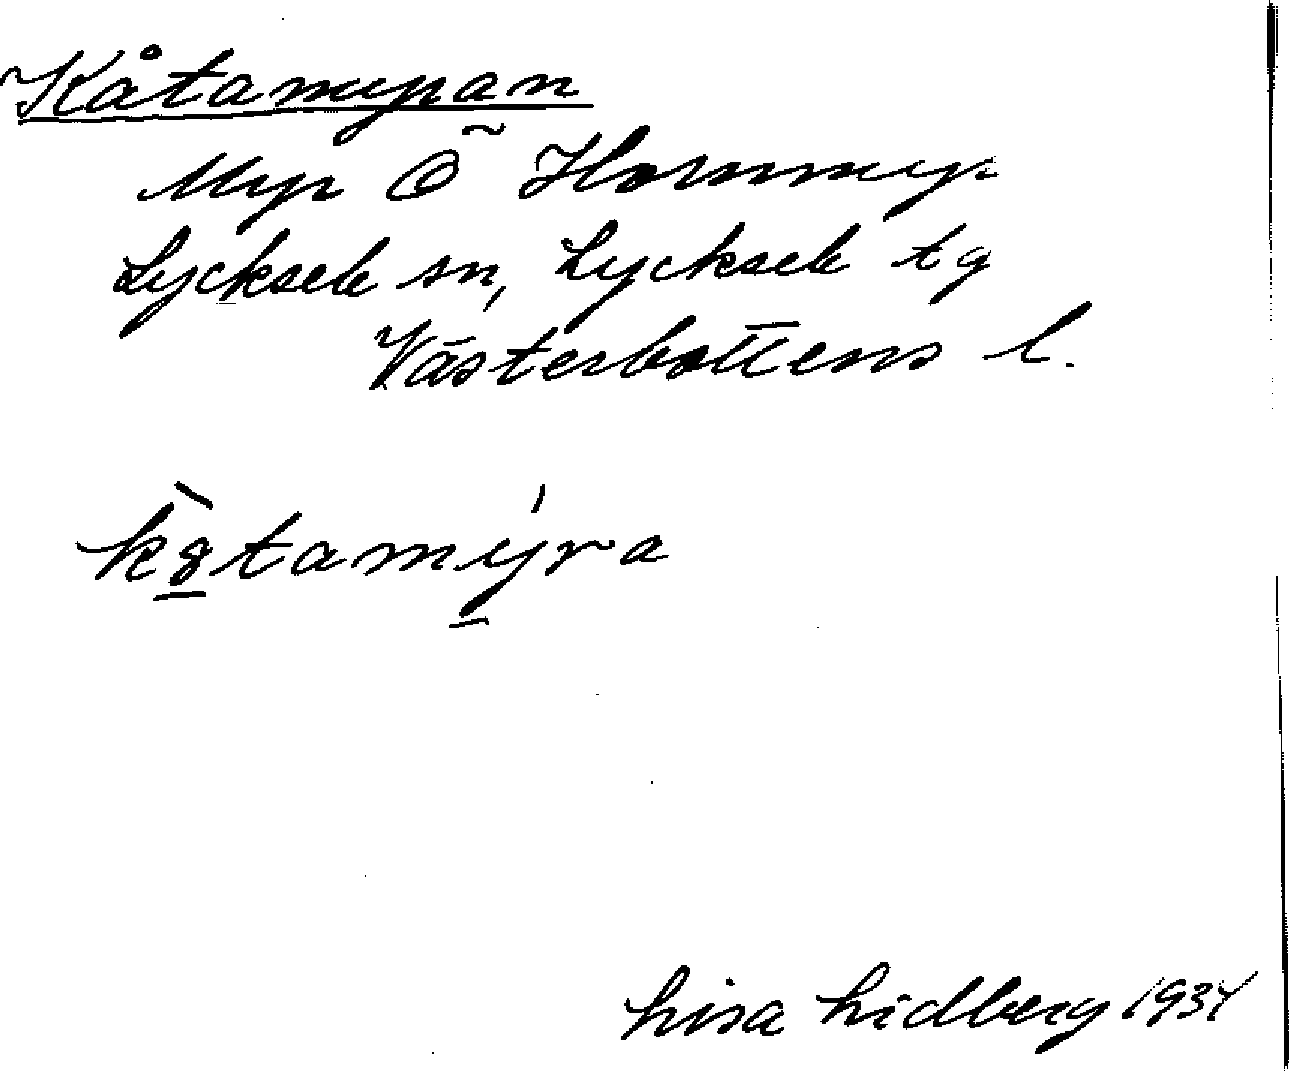 Kåtamyran
Myr Ö Hornmyr
Lycksele sn, Lycksele tg
Västerbottens l.
k8̱̀tamý̱ra
Lisa Lidberg 1934